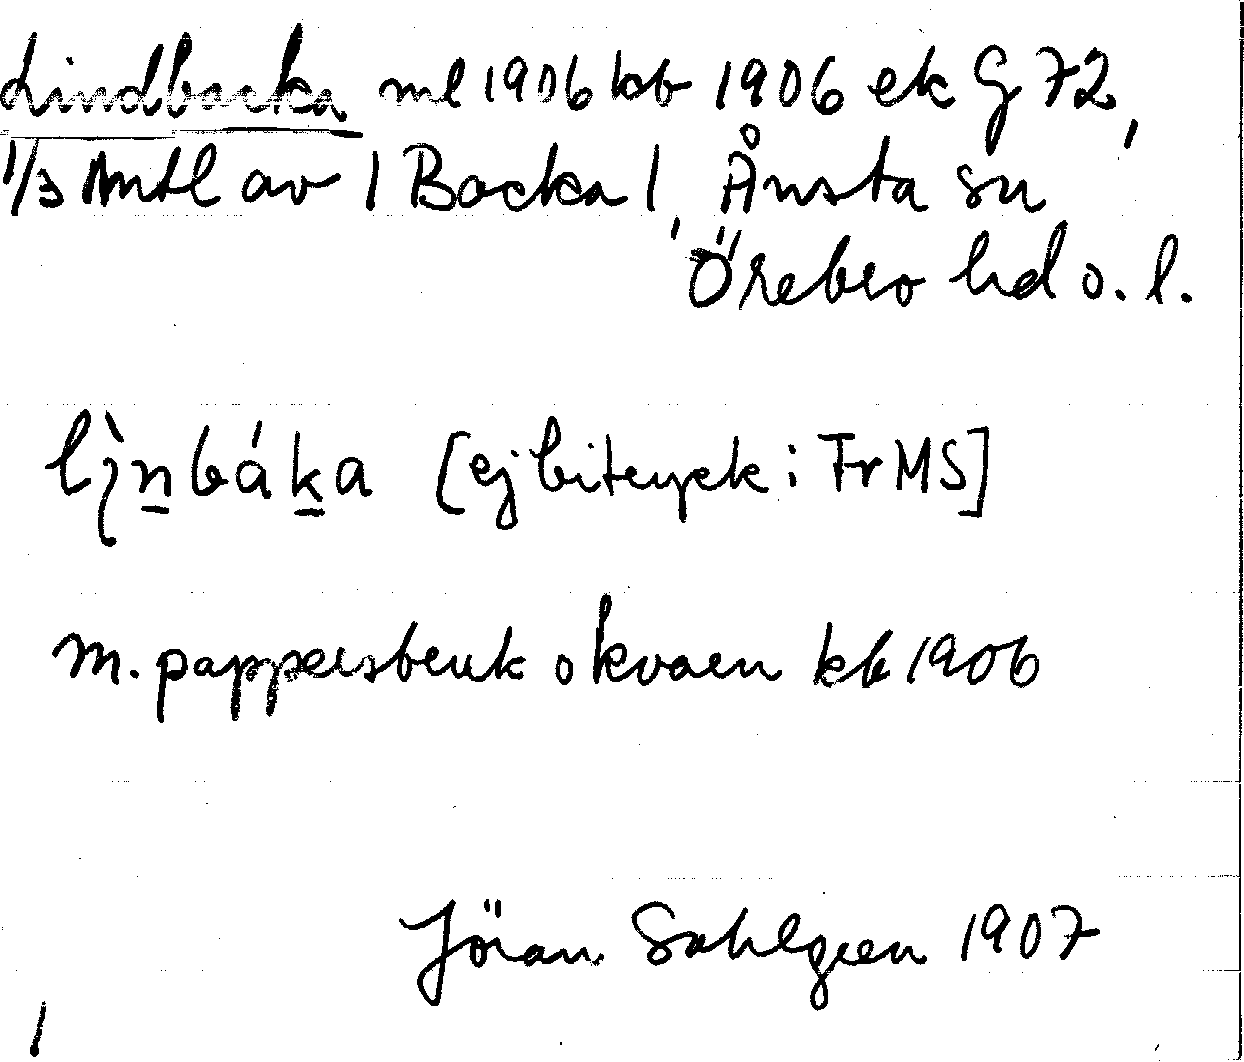 Lindbacka ml 1906 kb 1906 ek G 72,
1/3 Mntl av 1 Backa 1, Ånsta sn
Örebro hd o. l.
lìnbáka [ej bitryck i FrMS]
m. pappersbruk o kvarn kb 1906
Jöran Sahlgren 1907
1